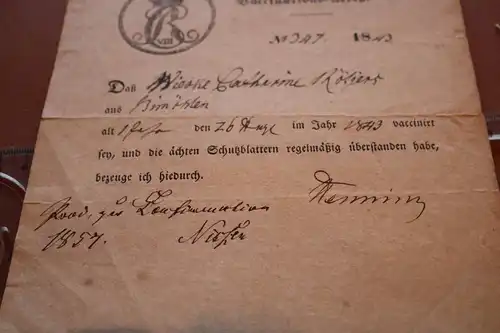 VIII
№ 247. 1843
Daß Wiebke Catherine
aus Bimöhlen
alt 1 Jahr den 26 Aug. im Jahr 1843 vaccinirt
sey, und die ächten Schutzblattern regelmäßig überstanden habe,
bezeuge ich hiedurch.
Henning
Prod. zur Confirmation
1857. Nissen